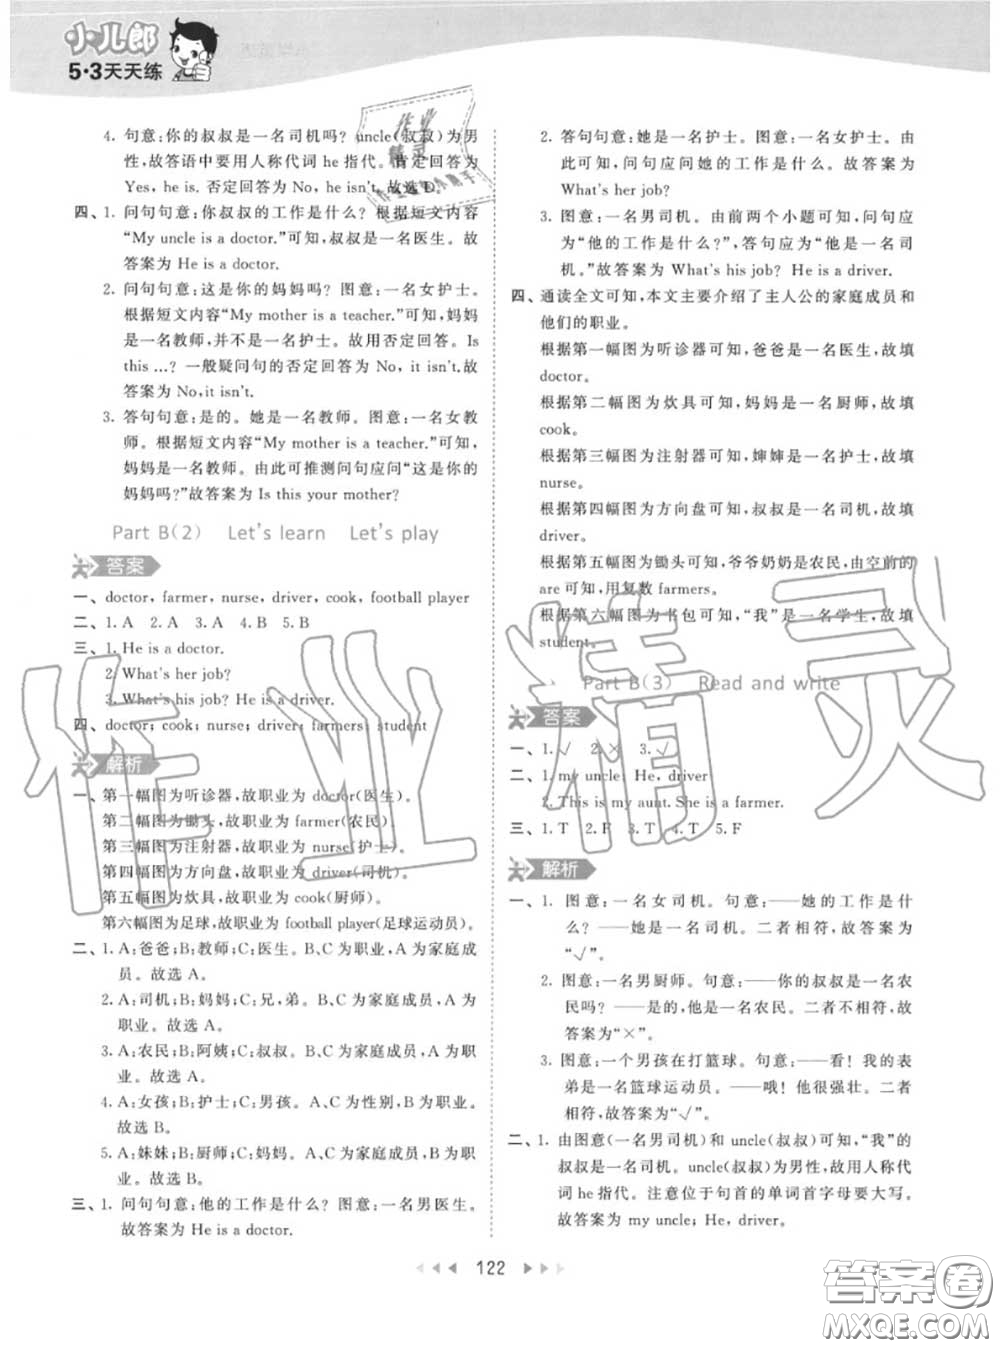 小儿郎
5·3天天练
4. 句意:你的叔叔是一名司机吗? uncle(叔叔)为男
性,故答语中要用人称代词 he 指代。肯定回答为
Yes, he is. 否定回答为 No, he isn't. 故选 D。
四、1. 问句句意:你叔叔的工作是什么? 根据短文内容
“My uncle is a doctor.”可知,叔叔是一名医生。故
答案为 He is a doctor.
2. 问句句意:这是你的妈妈吗? 图意:一名女护士。
根据短文内容“My mother is a teacher.”可知,妈妈
是一名教师,并不是一名护士。故用否定回答。Is
this …? 一般疑问句的否定回答为 No, it isn't. 故
答案为 No,it isn't.
3. 答句句意:是的。她是一名教师。图意:一名女教
师。根据短文内容“My mother is a teacher.”可知,
妈妈是一名教师。由此可推测问句应问“这是你的
妈妈吗?”故答案为 Is this your mother?
Part B(2) Let's learn Let's play
答案
一、doctor, farmer, nurse, driver, cook, football player
二、1. A 2. A 3. A 4. B 5. B
三、1. He is a doctor.
2. What's her job?
3. What's his job? He is a driver.
四、doctor; cook; nurse; driver; farmers; student
解析
一、第一幅图为听诊器,故职业为 doctor(医生)。
第二幅图为锄头,故职业为 farmer(农民)。
第三幅图为注射器,故职业为 nurse(护士)。
第四幅图为方向盘,故职业为 driver(司机)。
第五幅图为炊具,故职业为 cook(厨师)。
第六幅图为足球,故职业为 football player(足球运动员)。
二、1. A:爸爸;B:教师;C:医生。B、C为职业,A为家庭成
员。故选 A。
2. A:司机;B:妈妈;C:兄,弟。B、C为家庭成员,A为
职业。故选 A。
3. A:农民;B:阿姨;C:叔叔。B、C为家庭成员,A为职
业。故选 A。
4. A:女孩;B:护士;C:男孩。A、C为性别,B为职业。
故选 B。
5. A:妹妹;B:厨师;C:妈妈。A、C为家庭成员,B为职
业。故选 B。
三、1. 问句句意:他的工作是什么? 图意:一名男医生。
故答案为 He is a doctor.
2. 答句句意:她是一名护士。图意:一名女护士。由
此可知,问句应问她的工作是什么。故答案为
What's her job?
3. 图意:一名男司机。由前两个小题可知,问句应
为“他的工作是什么?”,答句应为“他是一名司
机。”故答案为 What's his job? He is a driver.
四、通读全文可知,本文主要介绍了主人公的家庭成员和
他们的职业。
根据第一幅图为听诊器可知,爸爸是一名医生,故填
doctor。
根据第二幅图为炊具可知,妈妈是一名厨师,故填
cook。
根据第三幅图为注射器可知,婶婶是一名护士,故填
nurse。
根据第四幅图为方向盘可知,叔叔是一名司机,故填
driver。
根据第五幅图为锄头可知,爷爷奶奶是农民,由空前的
are 可知,用复数 farmers。
根据第六幅图为书包可知,“我”是一名学生,故填
student。
Part B(3) Read and write
答案
一、1. √ 2. × 3. √
二、1. my uncle; He, driver
2. This is my aunt. She is a farmer.
三、1. T 2. F 3. T 4. T 5. F
解析
一、1. 图意:一名女司机。句意:——她的工作是什
么? ——她是一名司机。二者相符,故答案为
“√”。
2. 图意:一名男厨师。句意:——你的叔叔是一名农
民吗? ——是的,他是一名农民。二者不相符,故
答案为“×”。
3. 图意:一个男孩在打篮球。句意:——看! 我的表
弟是一名篮球运动员。——哦! 他很强壮。二者
相符,故答案为“√”。
二、1. 由图意(一名男司机)和 uncle(叔叔)可知,“我”的
叔叔是一名司机。uncle(叔叔)为男性,故用人称代
词 he 指代。注意位于句首的单词首字母要大写。
故答案为 my uncle; He, driver.
122
作业精灵
答案卷
MXQE.COM